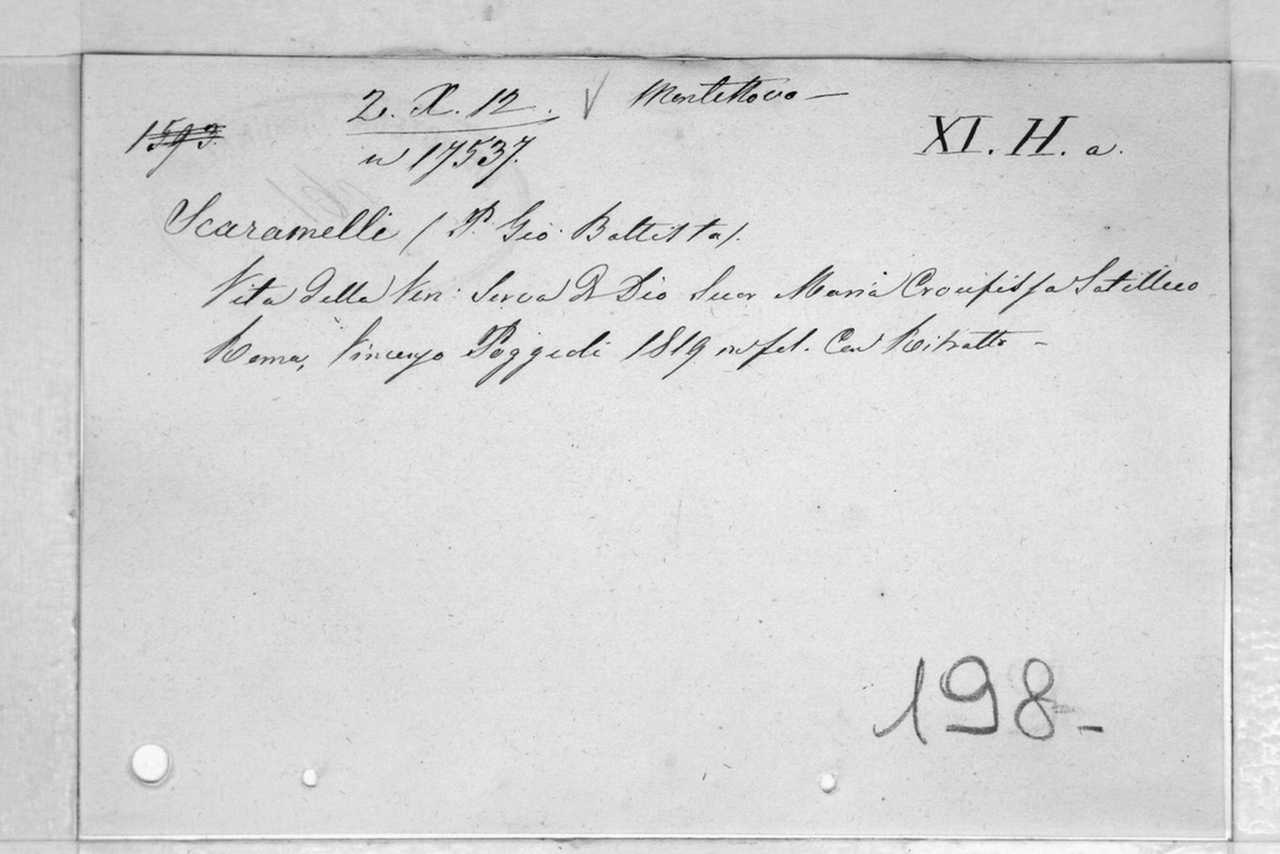 2. X. 12. √ Montenovo —
1593. XI. H. a.
n 17537.
Scaramelli (P. Gio: Battista).
Vita della Ven: Serva di Dio Suor Maria Crocifissa Satellico
Roma, Vincenzo Poggioli 1819 in fol. Con Ritratto -
198-